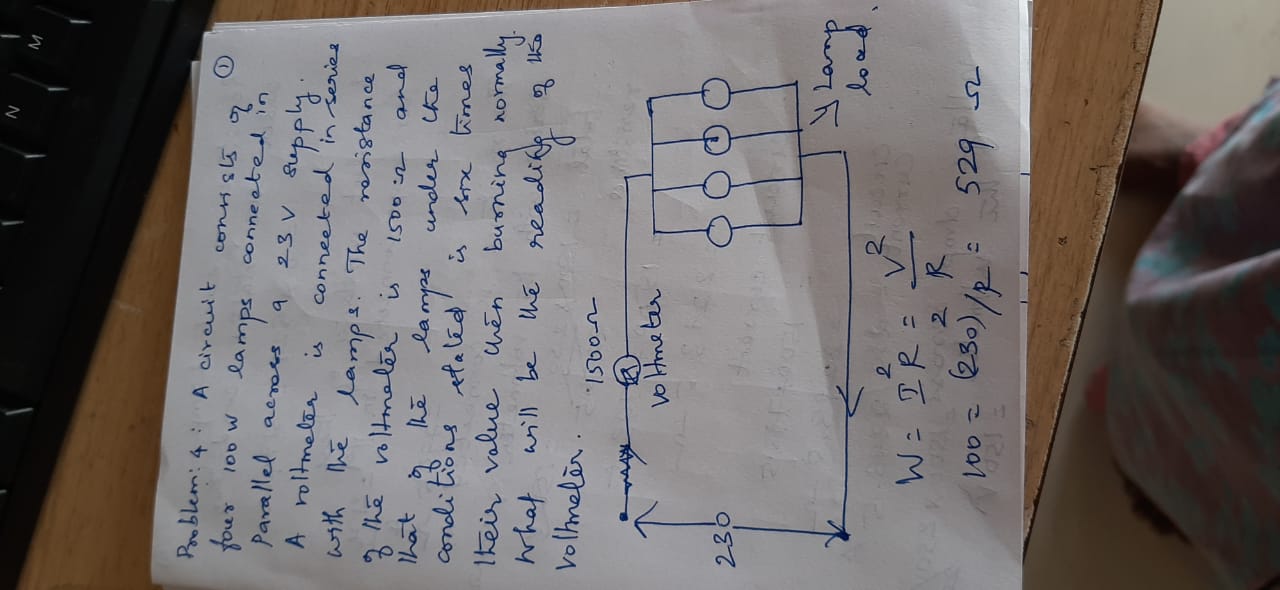 ①
Problem: 4 : A circuit consists of
four 100 w lamps connected in
parallel across a 23 V supply.
A voltmeter is connected in series
with the lamps. The resistance
of the voltmeter is 1500 Ω and
that of the lamps under the
conditions stated is six times
their value then burning normally.
what will be the reading of the
voltmeter.
1500Ω
voltmeter
230
Lamp
load.
W = I² R = V²/R
100 = (230)²/R = 529 Ω
N M